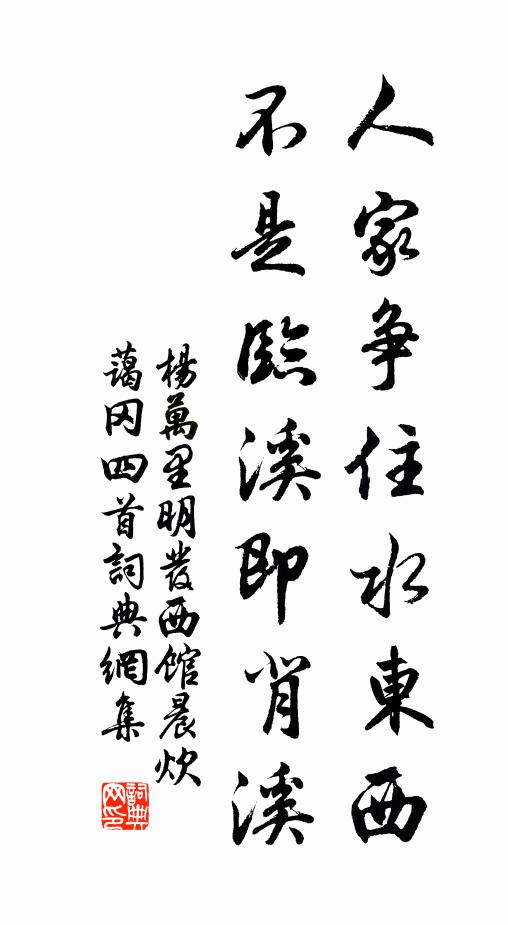 人家争住水東西
不是臨溪即背溪
楊萬里明發西館晨炊
藹冈四首詞典網集
詞典网印